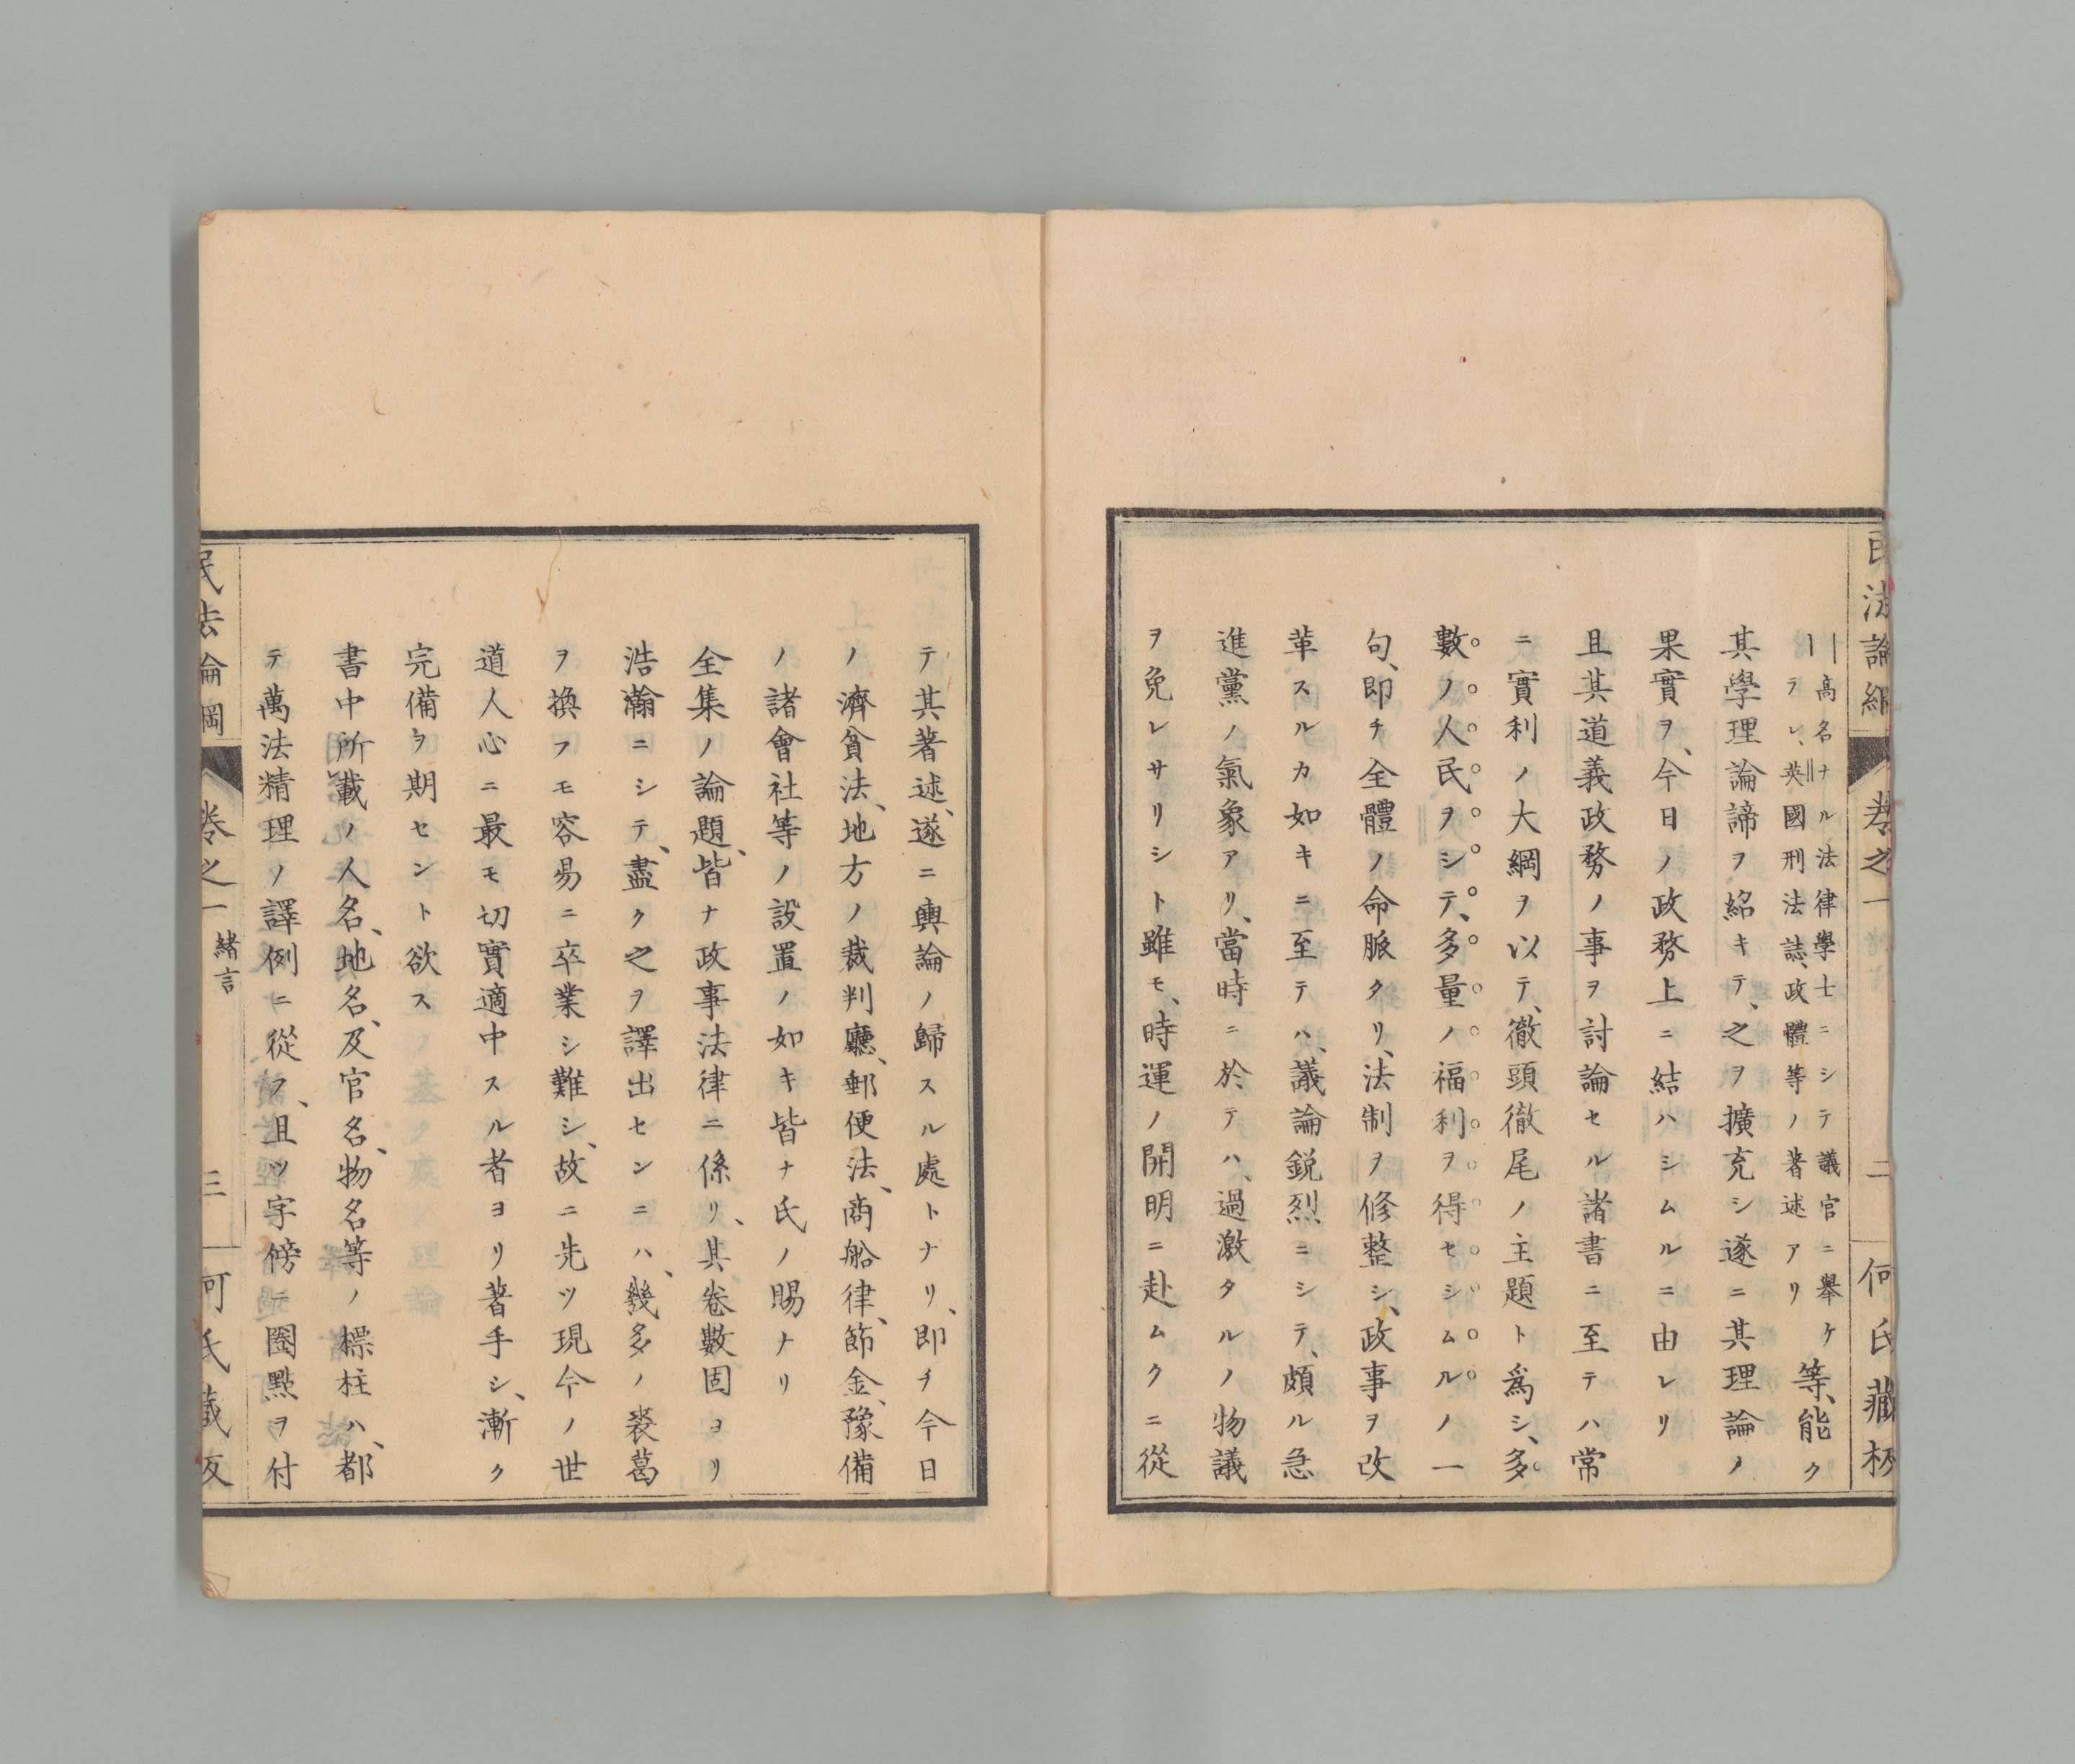 民法論綱 巻之一 二 何氏藏板
高名ナル法律學士ニシテ議官ニ擧ケ
ラレ、英國刑法誌、政體等ノ著述アリ
等、能ク
其學理論諦ヲ紹キテ、之ヲ擴充シ遂ニ其理論ノ
果實ヲ、今日ノ政務上ニ結ハシムルニ由レリ
且其道義政務ノ事ヲ討論セル諸書ニ至テハ常
ニ實利ノ大綱ヲ以テ、徹頭徹尾ノ主題ト爲シ、多
數ノ人民ヲシテ、多量ノ福利ヲ得セシムルノ一
句、即チ全體ノ命脈タリ、法制ヲ修整シ、政事ヲ改
革スルカ如キニ至テハ、議論鋭烈ニシテ、頗ル急
進黨ノ氣象アリ、當時ニ於テハ、過激タルノ物議
ヲ免レサリシト雖モ、時運ノ開明ニ赴ムクニ從
テ其著述、遂ニ輿論ノ歸スル處トナリ、即チ今日
ノ濟貧法、地方ノ裁判廳、郵便法、商船律、節金、豫備
ノ諸會社等ノ設置ノ如キ皆ナ氏ノ賜ナリ
全集ノ論題、皆ナ政事法律ニ係リ、其卷數固ヨリ
浩瀚ニシテ、盡ク之ヲ譯出センニハ、幾多ノ裘葛
ヲ換フモ容易ニ卒業シ難シ、故ニ先ツ現今ノ世
道人心ニ最モ切實適中スル者ヨリ著手シ、漸ク
完備ヲ期セント欲ス
書中所載ノ人名、地名、及官名、物名等ノ標柱ハ、都
テ萬法精理ノ譯例ニ從フ、且ツ字傍ニ圏點ヲ付
民法論綱 巻之一 緒言 三 何氏藏板